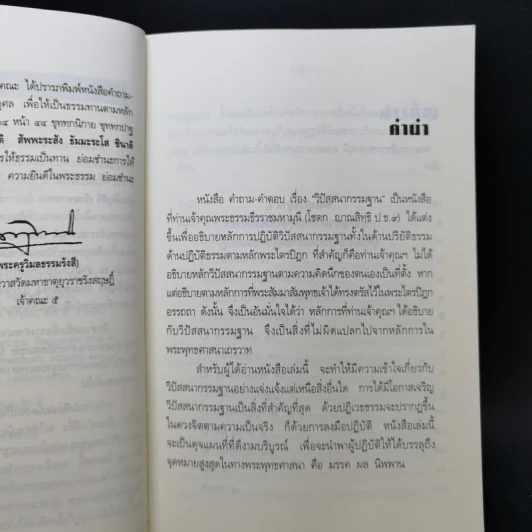 คณะ ได้ปรารภพิมพ์หนังสือคำถาม-
กุศล เพื่อให้เป็นธรรมทานตามหลัก
๑๔ หน้า ๔๔ ขุททกนิกาย ขุททกปาฐ
ติ สัพพะระสัง ธัมมะระโส ชินาติ
การให้ธรรมเป็นทาน ย่อมชำนะการให้
ความยินดีในพระธรรม ย่อมชำนะ
พระครูวิมลธรรมรังสี)
วาสวัดมหาธาตุยุวราชรังสฤษฎิ์
เจ้าคณะ ๕
คำนำ
หนังสือ คำถาม-คำตอบ เรื่อง "วิปัสสนากรรมฐาน" เป็นหนังสือ
ที่ท่านเจ้าคุณพระธรรมธีรราชมหามุนี (โชดก ญาณสิทฺธิ ป.ธ.๙) ได้แต่ง
ขึ้นเพื่ออธิบายหลักการปฏิบัติวิปัสสนากรรมฐานทั้งในด้านปริยัติธรรม
ด้านปฏิบัติธรรมตามหลักพระไตรปิฎก ที่สำคัญก็คือท่านเจ้าคุณฯ ไม่ได้
อธิบายหลักวิปัสสนากรรมฐานตามความคิดนึกของตนเองเป็นที่ตั้ง หาก
แต่อธิบายตามหลักการที่พระสัมมาสัมพุทธเจ้าได้ทรงตรัสไว้ในพระไตรปิฎก
อรรถถา ดังนั้น จึงเป็นอันมั่นใจได้ว่า หลักการที่ท่านเจ้าคุณฯ ได้อธิบาย
กับวิปัสสนากรรมฐาน จึงเป็นสิ่งที่ไม่ผิดแปลกไปจากหลักการใน
พระพุทธศาสนาเถรวาท
สำหรับผู้ได้อ่านหนังสือเล่มนี้ จะทำให้มีความเข้าใจเกี่ยวกับ
วิปัสสนากรรมฐานอย่างแจ่งแจ้งแต่เหนือสิ่งอื่นใด การได้มีโอกาสเจริญ
วิปัสสนากรรมฐานเป็นสิ่งที่สำคัญที่สุด ด้วยปฏิเวธธรรมจะปรากฏขึ้น
ในดวงจิตตามความเป็นจริง ก็ด้วยการลงมือปฏิบัติ หนังสือเล่มนี้
จะเป็นดุจแผนที่ที่ดีงามบริบูรณ์ เพื่อจะนำพาผู้ปฏิบัติให้ได้บรรลุถึง
จุดหมายสูงสุดในทางพระพุทธศาสนา คือ มรรค ผล นิพพาน